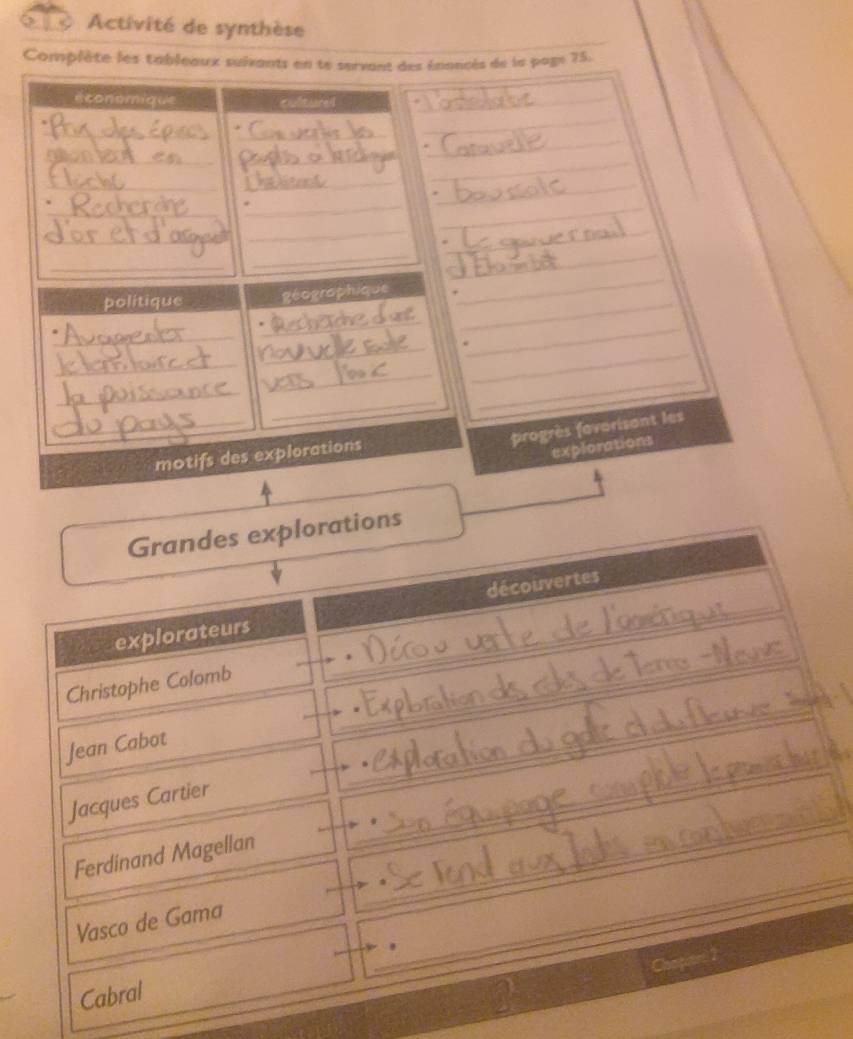 Activité de synthèse
Complète les tableaux suivants en te servant des énoncés de la page 75.
économique
• Prix des épices
montent en
flèche
• Recherche
d'or et d'argent
culturel
• Convertir les
peuples a la religion
•
• l'astrolabe
• Caravelle
• boussole
• Le gouvernail
d'Etambot
•
•
politique
• Augmenter
le territoire et
la puissance
du pays
géographique
• Recherche d'une
nouvelle route
vers
motifs des explorations
progrès favorisant les
explorations
Grandes explorations
explorateurs
découvertes
Christophe Colomb
• Découverte de l'amérique
Jean Cabot
• Exploration des côtes de Terre-Neuve
Jacques Cartier
• exploration du golfe et du fleuve
Ferdinand Magellan
• Son équipage complète le premier
Vasco de Gama
• Se rend aux Indes en contournant
Cabral
•
Chapitre 2